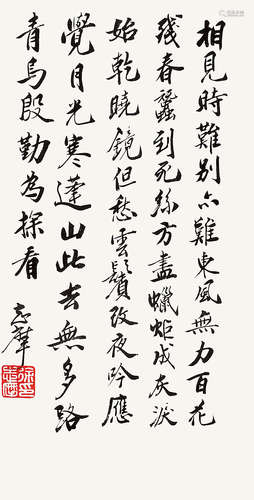 相見時難別亦難東風無力百花
殘春蠶到死絲方盡蠟炬成灰淚
始乾曉鏡但愁雲鬢改夜吟應
覺月光寒蓬山此去無多路
青鳥殷勤為探看
志摩